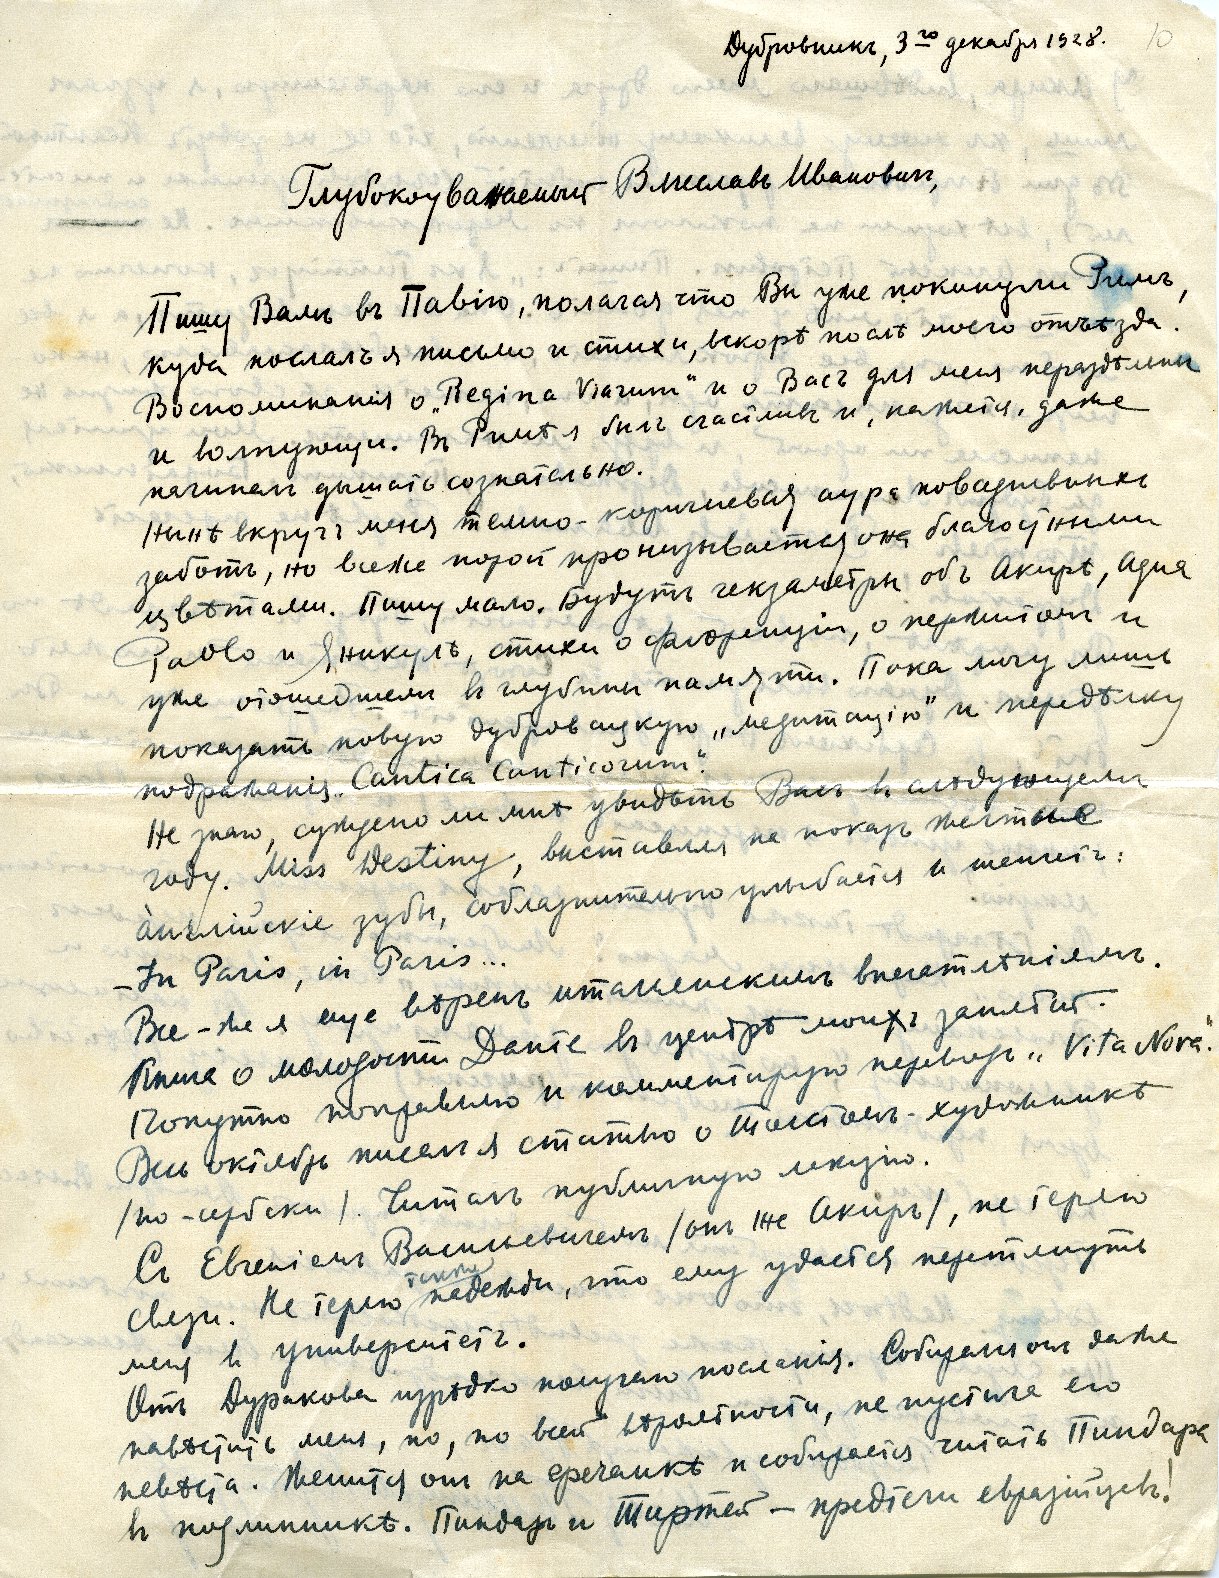 10
Дубровникъ, 3го декабря 1928.
Глубокоуважаемый Вячеславъ Ивановичъ,
Пишу Вамъ въ Павію, полагая что Вы уже покинули Римъ,
куда послалъ я письмо и стихи, вскорѣ послѣ моего отъѣзда.
Воспоминанія о „Regina Viarum“ и о Васъ для меня нераздѣльны
и волнующи. Въ Римѣ я былъ счастливъ и, кажется, даже
начиналъ дышать сознательно.
Нынѣ вкругъ меня темно-коричневая аура повседневныхъ
заботъ, но все же порой пронизывается она благостными
цвѣтами. Пишу мало. Будутъ гекзаметры объ Акирѣ, Aqua
Paola и Яникулѣ, стихи о Флоренціи, о пережитомъ и
уже отошедшемъ въ глубины памяти. Пока могу лишь
показать новую дубровацкую „медитацію“ и передѣлку
подражанія „Cantica Canticorum“.
Не знаю, суждено ли мнѣ увидѣть Васъ въ слѣдующемъ
году. Miss Destiny, выставляя на показъ желтые
англійскіе зубы, соблазнительно улыбается и шепчетъ:
– In Paris, in Paris...
Все-же я еще вѣренъ итальянскимъ впечатлѣніямъ.
Книга о молодости Данте въ центрѣ моихъ занятій.
Попутно поправляю и комментирую переводъ „Vita Nova“.
Весь октябрь писалъ я статью о Толстомъ-художникѣ
/по-сербски/. Читалъ публичную лекцію.
Съ Евгеніемъ Васильевичемъ /онъ же Акиръ/, не теряю
связи. Не теряю также надежды, что ему удастся перетянуть
меня въ университетъ.
Отъ Дуракова изрѣдко получаю посланія. Собирался онъ даже
навѣстить меня, но, по всей вѣроятности, не пустила его
невѣста. Женится онъ на гречанкѣ и собирается читать Пиндара
въ подлинникѣ. Пиндаръ и Тиртей – предтечи евразійцевъ!